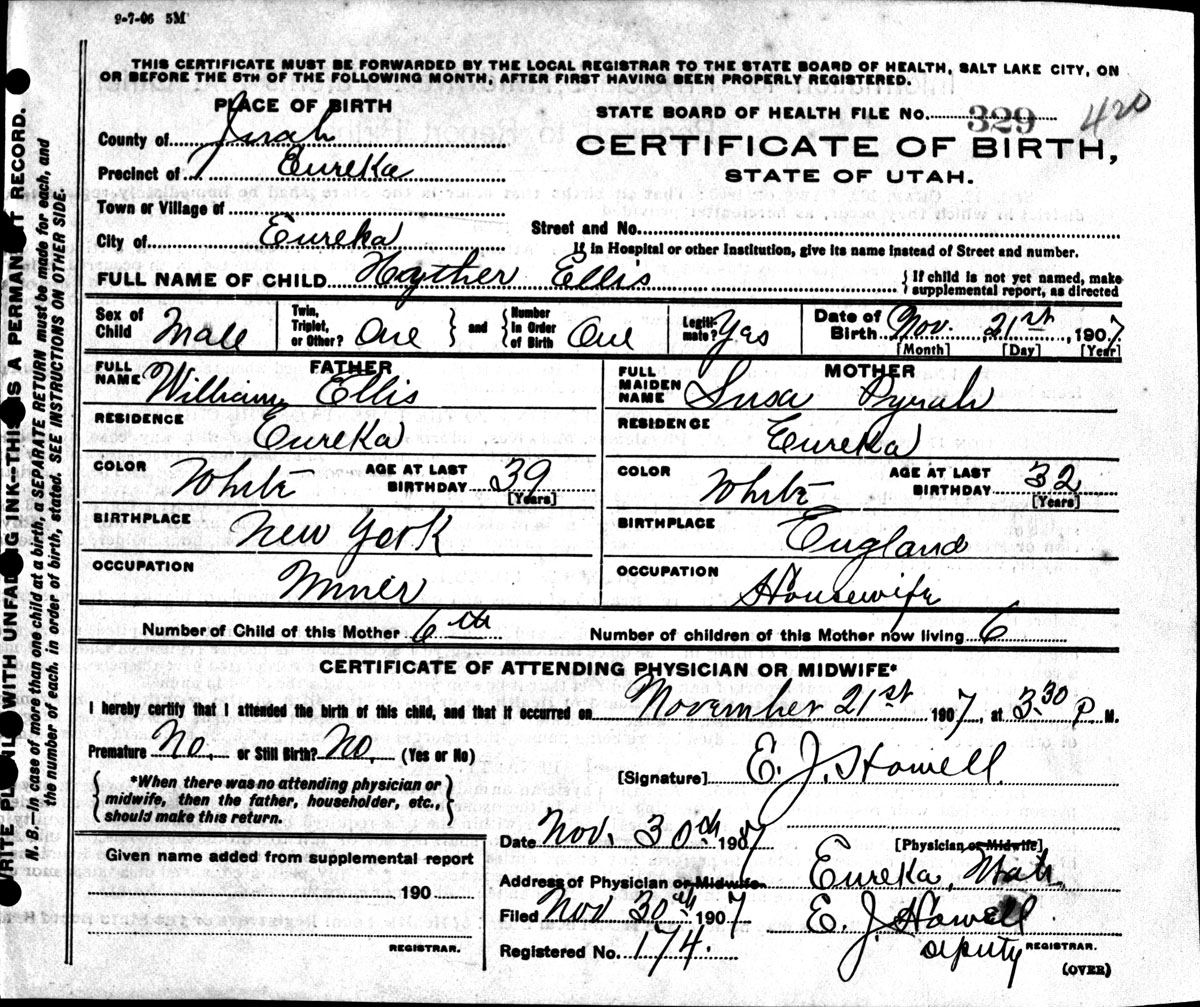 9-7-06 5M
THIS CERTIFICATE MUST BE FORWARDED BY THE LOCAL REGISTRAR TO THE STATE BOARD OF HEALTH, SALT LAKE CITY, ON
OR BEFORE THE 5TH OF THE FOLLOWING MONTH, AFTER FIRST HAVING BEEN PROPERLY REGISTERED.
PLACE OF BIRTH
STATE BOARD OF HEALTH FILE No. 329 420
County of Juab
CERTIFICATE OF BIRTH,
Precinct of Eureka
STATE OF UTAH.
Town or Village of
Street and No.
City of Eureka
If in Hospital or other Institution, give its name instead of Street and number.
FULL NAME OF CHILD Ellis
{If child is not yet named, make
supplemental report, as directed
Sex of Child Male
Twin, Triplet, or Other? One } and { Number in Order of Birth One
Legiti-mate? Yes
Date of Birth Nov. 21st, 1907
[Month] [Day] [Year]
FATHER
FULL NAME William Ellis
MOTHER
FULL MAIDEN NAME Susa Pyrah
RESIDENCE Eureka
RESIDENCE Eureka
COLOR White AGE AT LAST BIRTHDAY 39 [Years]
COLOR White AGE AT LAST BIRTHDAY 32 [Years]
BIRTHPLACE New York
BIRTHPLACE England
OCCUPATION Miner
OCCUPATION Housewife
Number of Child of this Mother 6th Number of children of this Mother now living 6
CERTIFICATE OF ATTENDING PHYSICIAN OR MIDWIFE*
I hereby certify that I attended the birth of this child, and that it occurred on November 21st 1907, at 3.30 P M.
Premature No. or Still Birth? No. (Yes or No)
[Signature] E. J. Howell
{*When there was no attending physician or
midwife, then the father, householder, etc.,
should make this return.}
Date Nov. 30th 1907
[Physician or Midwife]
Address of Physician or Midwife Eureka, Utah
Filed Nov 30th 1907 E. J. Howell
deputy REGISTRAR.
Registered No. 174.
(OVER)
Given name added from supplemental report
190
REGISTRAR.
WRITE PLAINLY WITH UNFADING INK—THIS IS A PERMANENT RECORD.
N. B. In case of more than one child at a birth, a SEPARATE RETURN must be made for each, and
the number of each, in order of birth, stated. SEE INSTRUCTIONS ON OTHER SIDE.